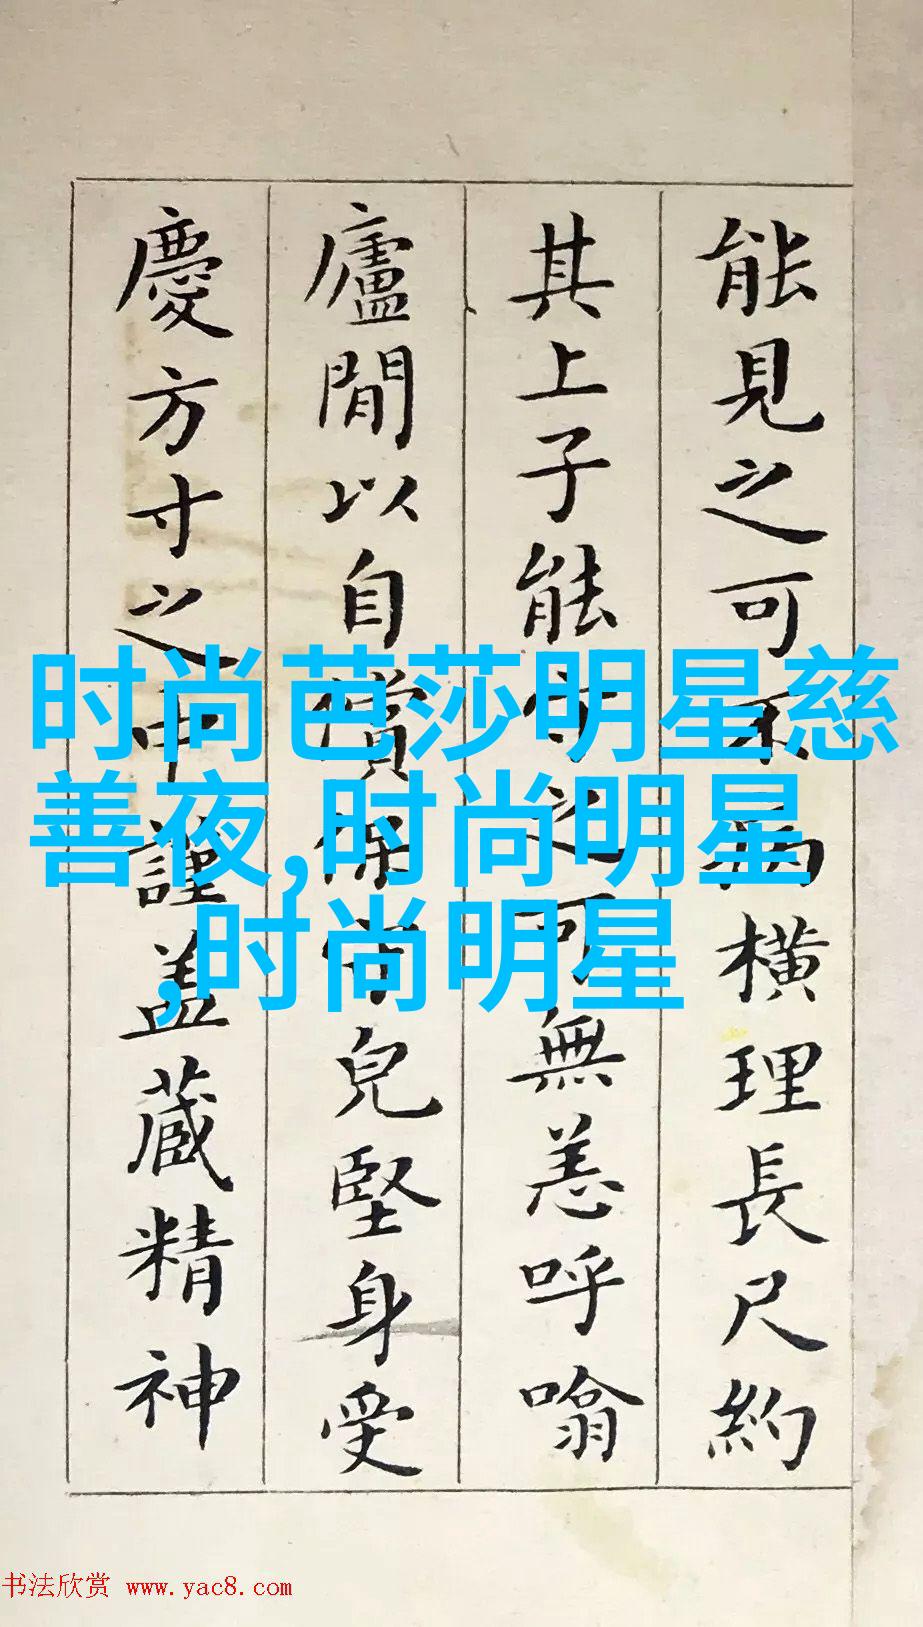 能見之可不病橫理長尺約
其上子能守之可無恙呼噏
廬閒以自償保守兒堅身受
慶方寸之中謹蓋藏精神
时尚芭莎明星慈
善夜,时尚明星
,时尚明星
书法欣赏 www.yac8.com